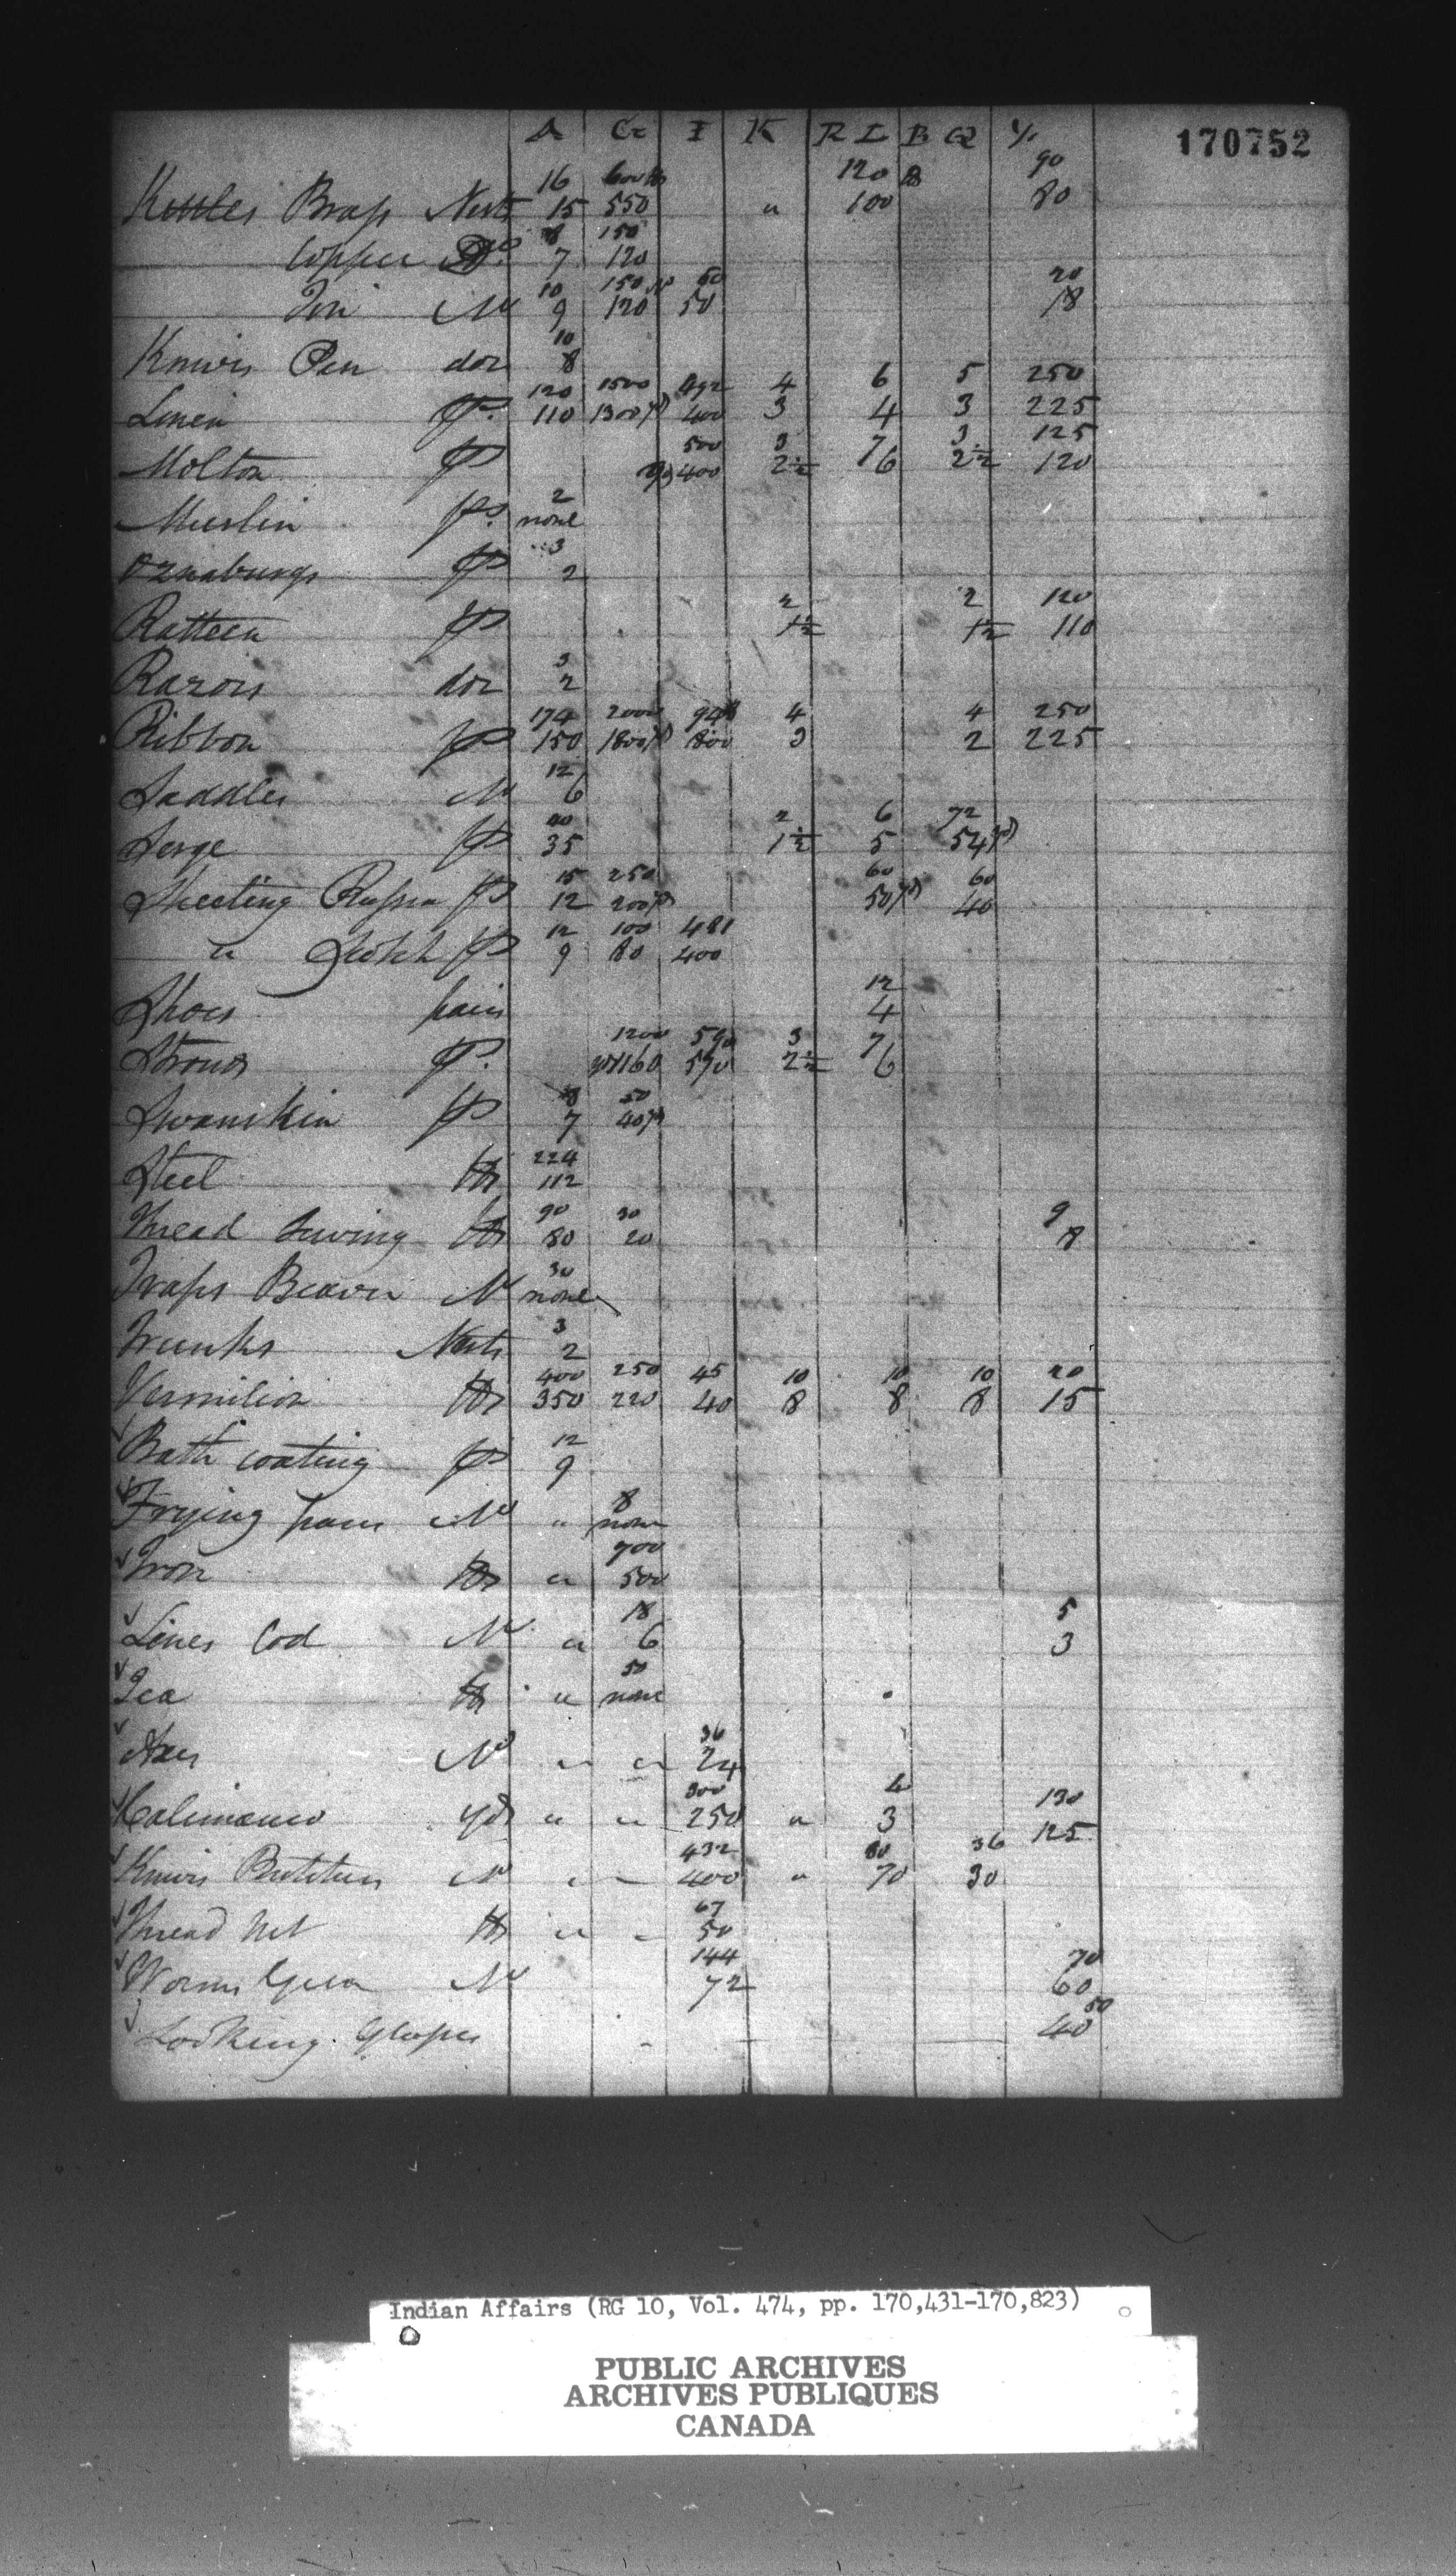 A G I K R L B Q Y. 170752
16 600 lb 120 lb 90
Kettles Brass Nests 15 550 " 100 80
8 150
Copper Do. 7 120
10 150 No 60 20
Tin No 9 120 50 18
10
Knives Pen doz 8
120 1500 492 4 6 5 250
Linen ps. 110 1300 yd 400 3 4 3 225
500 3 7 3 125
Molton ps yd 400 2½ 6 2½ 120
2
Muslin ps. none
3
Oznaburgs ps 2
2 2 120
Ratteen ps 1½ 1½ 110
3
Razors doz 2
174 2000 948 4 4 250
Ribbon ps 150 1800 yd 800 3 2 225
12
Saddles No 6
40 2 6 72
Serge ps 35 1½ 5 54 yd
15 250 60 60
Sheeting Russia ps 12 200 yd 50 yd 40
12 100 481
" Scotch ps 9 80 400
12
Shoes pairs 4
1200 590 3 7
Strouds ps. yd 1160 570 2½ 6
8 50
Swanskin ps 7 40 yd
224
Steel lbs 112
90 30 9
Thread Sewing lbs 80 20 8
30
Traps Beaver No none
3
Trunks Nests 2
400 250 45 10 10 10 20
Vermilion lbs 350 220 40 8 8 8 15
12
Bath coating ps 9
8
Frying pans No " none
700
Iron lbs " 500
18 5
Lines Cod No " 6 3
50
Tea lb " none
36
Axes No " " 24
300 4 130
Calimanco yds " " 250 " 3 125
432 80 36
Knives Butchers No " " 400 " 70 30
67
Thread Net lbs " " 50
144 70
Worms Gun No 72 60
50
Looking Glasses 40
Indian Affairs (RG 10, Vol. 474, pp. 170,431-170,823)
PUBLIC ARCHIVES
ARCHIVES PUBLIQUES
CANADA